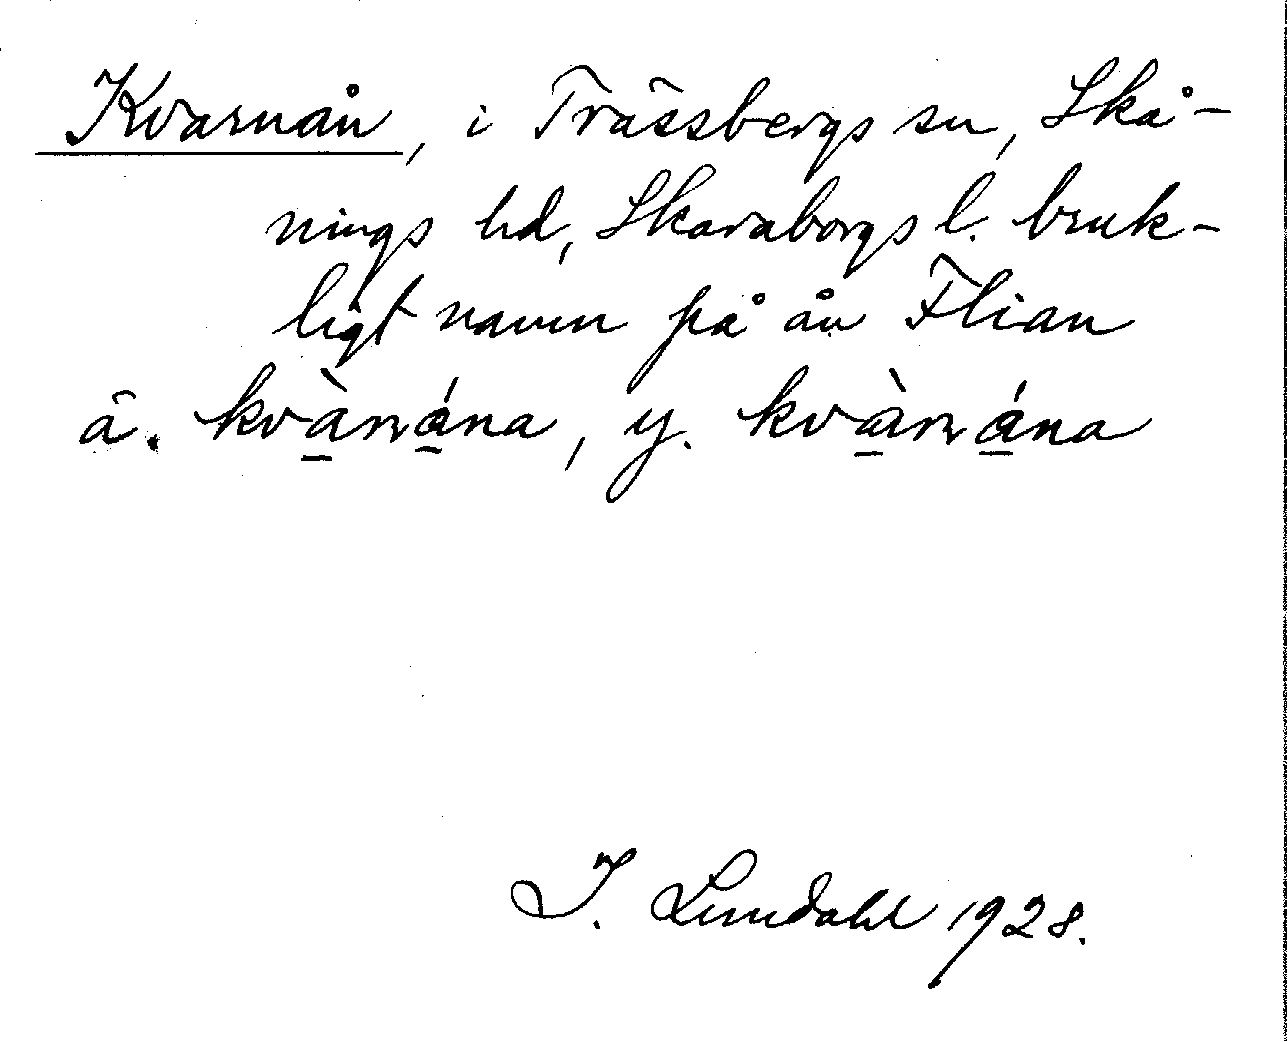 Kvarnån, i Trässbergs sn, Skå-
nings hd, Skaraborgs l. bruk-
ligt namn på ån Flian
ä. kvàṉána, y. kvàṉána
I. Lundahl 1928.